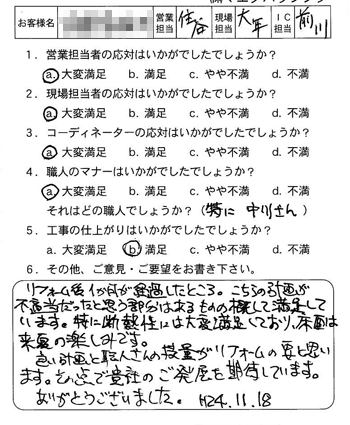 お客様名 営業担当 住谷 現場担当 大年 IC担当 前川
1．営業担当者の応対はいかがでしたでしょうか？
a. 大変満足 b. 満足 c. やや不満 d. 不満
2．現場担当者の応対はいかがでしたでしょうか？
a. 大変満足 b. 満足 c. やや不満 d. 不満
3．コーディネーターの応対はいかがでしたでしょうか？
a. 大変満足 b. 満足 c. やや不満 d. 不満
4．職人のマナーはいかがでしたでしょうか？
a. 大変満足 b. 満足 c. やや不満 d. 不満
それはどの職人でしょうか？（特に 中川さん ）
5．工事の仕上がりはいかがでしたでしょうか？
a. 大変満足 b. 満足 c. やや不満 d. 不満
6．その他、ご意見・ご要望をお書き下さい。
リフォーム後1か月が経過したところ。こちらの計画が
不適当だったと思う部分はあるものの概して満足して
います。特に断熱性には大変満足しており、床面は
来夏の楽しみです。
良い計画と職人さんの技量がリフォームの要と思い
ます。その点で貴社のご発展を期待しています。
ありがとうございました。 H24.11.18